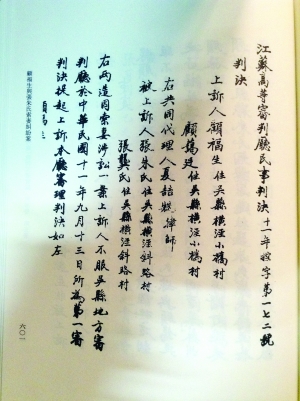 江蘇高等審判廳民事判決十一年控字第一七二號
判決
上訴人顧福生住吳縣橫涇小橋村
顧蕩廷住吳縣橫涇小橋村
右共同代理人夏喆兟律師
被上訴人張朱氏住吳縣橫涇斜路村
張龔氏住吳縣橫涇斜路村
右兩造因索妻涉訟一案上訴人不服吳縣地方審
判廳於中華民國十一年九月十三日所為第一審
判決提起上訴本廳審理判決如左
顧福生與張朱氏索妻糾紛案
六〇一